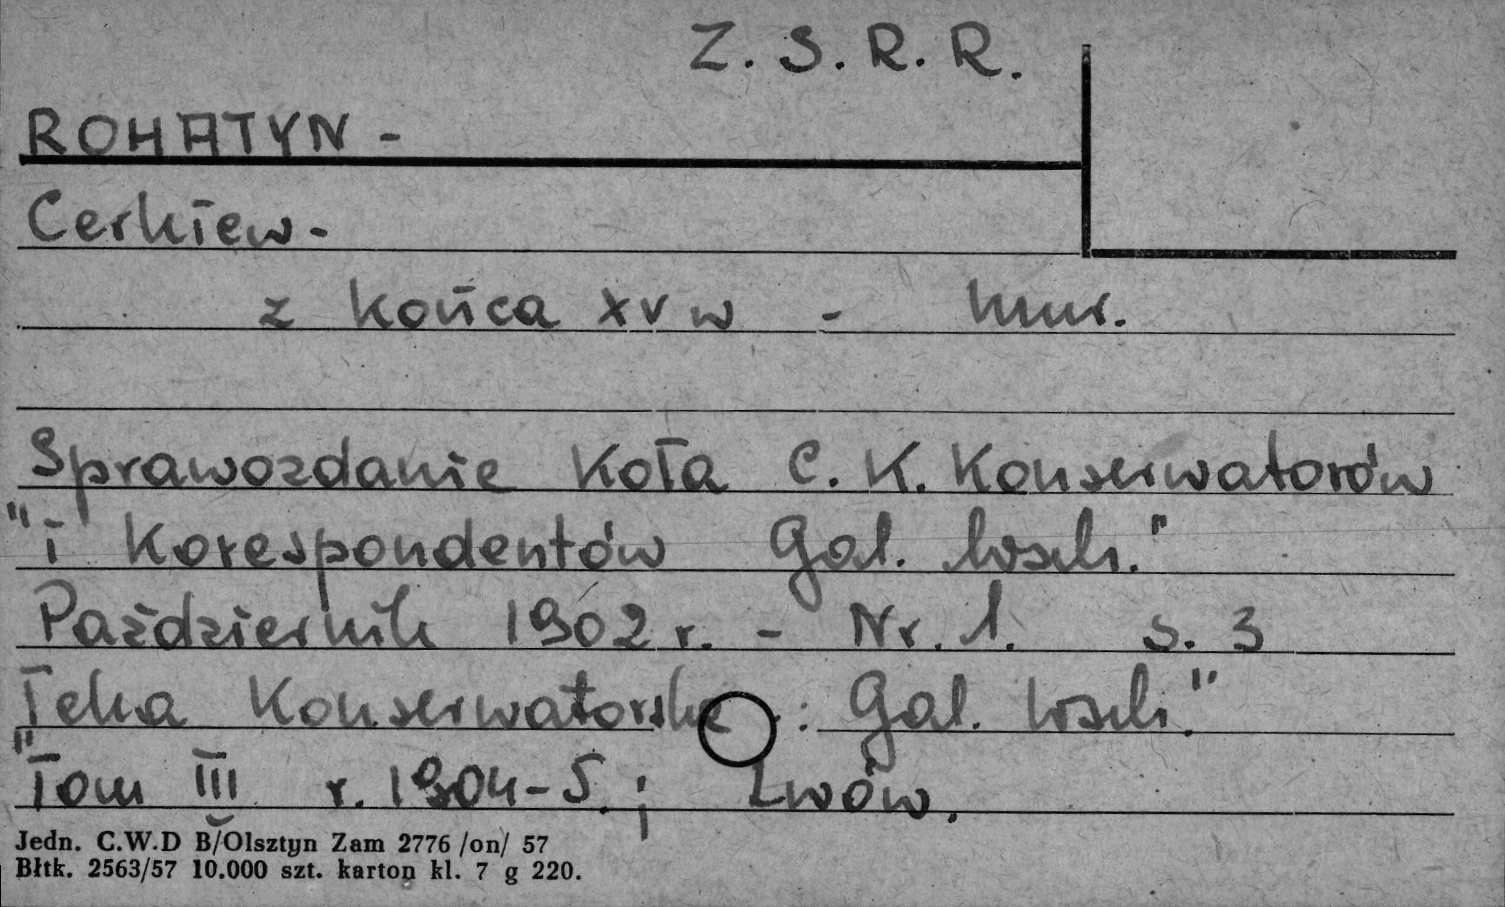 Z. S. R. R.
ROHATYN -
Cerkiew -
z końca XV w - mur.
Sprawozdanie Koła C. K. Konserwatorów
"i Korespondentów Gal. Wsch."
Październik 1902 r. - Nr. 1. s. 3
Teka Konserwatorska : Gal. Wsch."
"Tom III r. 1904-5.; Lwów.
Jedn. C.W.D B/Olsztyn Zam 2776 /on/ 57
Błtk. 2563/57 10.000 szt. karton kl. 7 g 220.